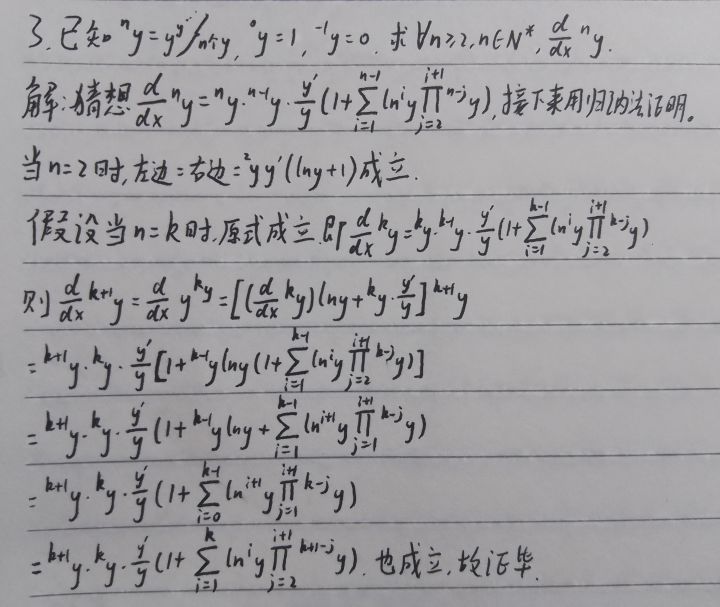 3. 已知 ⁿy = y^{y^{⋰}}/n个y, ⁰y=1, ⁻¹y=0. 求 ∀n≥2, n∈N*, \frac{d}{dx} ⁿy.
解: 猜想 \frac{d}{dx} ⁿy = ⁿy·ⁿ⁻¹y·\frac{y'}{y}(1+\sum_{i=1}^{n-1} ln^i y \prod_{j=2}^{i+1} {}^{n-j}y), 接下来用归纳法证明。
当n=2时, 左边=右边=²y y'(lny+1) 成立.
假设当n=k时, 原式成立. 即 \frac{d}{dx} {}^k y = {}^k y·{}^{k-1}y·\frac{y'}{y}(1+\sum_{i=1}^{k-1} ln^i y \prod_{j=2}^{i+1} {}^{k-j}y)
则 \frac{d}{dx} {}^{k+1}y = \frac{d}{dx} y^{{}^k y} = [(\frac{d}{dx} {}^k y) lny + {}^k y·\frac{y'}{y}] {}^{k+1}y
= {}^{k+1}y·{}^k y·\frac{y'}{y}[1+{}^{k-1}y lny (1+\sum_{i=1}^{k-1} ln^i y \prod_{j=2}^{i+1} {}^{k-j}y)]
= {}^{k+1}y·{}^k y·\frac{y'}{y}(1+{}^{k-1}y lny + \sum_{i=1}^{k-1} ln^{i+1} y \prod_{j=1}^{i+1} {}^{k-j}y)
= {}^{k+1}y·{}^k y·\frac{y'}{y}(1+\sum_{i=0}^{k-1} ln^{i+1} y \prod_{j=1}^{i+1} {}^{k-j}y)
= {}^{k+1}y·{}^k y·\frac{y'}{y}(1+\sum_{i=1}^{k} ln^i y \prod_{j=2}^{i+1} {}^{k+1-j}y). 也成立, 故证毕.